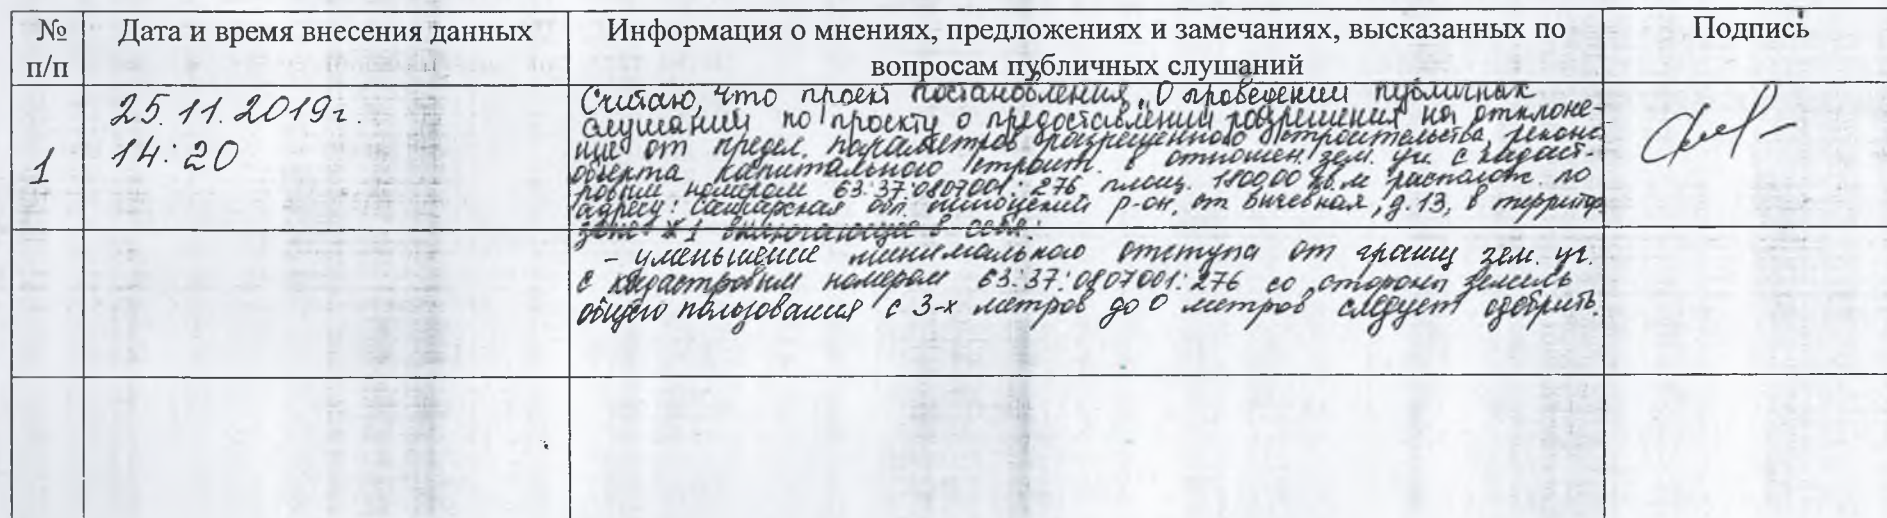 № п/п
Дата и время внесения данных
Информация о мнениях, предложениях и замечаниях, высказанных по
вопросам публичных слушаний
Подпись
1
25.11.2019г.
14:20
Считаю, что проект постановления „О проведении публичных
слушаний по проекту о предоставлении разрешения на отклоне-
ние от предел. параметров разрешенного строительства, реконс
объекта капитального строит. в отношен. зем. уч. с кадаст-
ровым номером 63:37:0807001:276, площ. 1800,00 кв.м располож. по
адресу: Самарская обл. р-он, д.13, в территор
зоне включающее в себя:
- уменьшение минимального отступа от границ зем. уч.
с кадастровым номером 63:37:0807001:276 со стороны земель
общего пользования с 3-х метров до 0 метров следует одобрить.